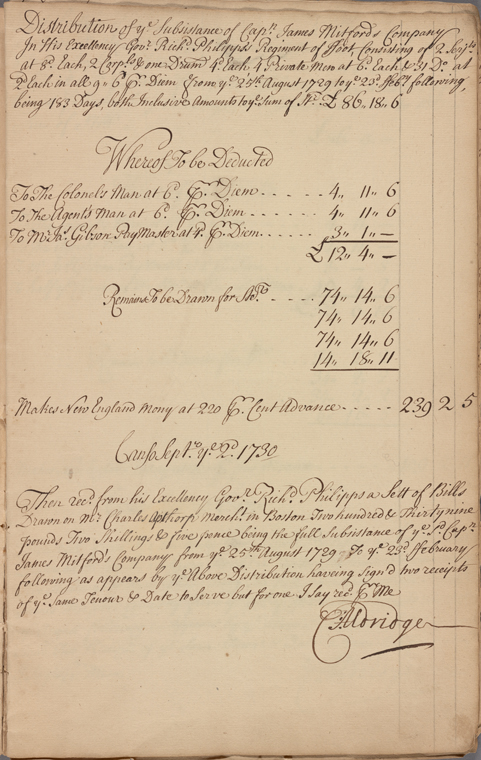 Distribution of yᵉ Subsistance of Capᵗⁿ James Mitford's Company
In His Excellency Govʳ Richᵈ Philipps's Regiment of Foot Consisting of 2 Serjᵗˢ
at 8ᵈ Each, 2 Corpˡˢ & one Drumʳ 4ᵈ Each 4 Private Men at 6ᵈ Each & 31 Dᵒ at
2ᵈ Each in all 9,, 6 ℔ Diem from yᵉ 25ᵗʰ August 1729 to yᵉ 23ᵈ Febʸ following,
being 183 Days, both Inclusive Amounts to yᵉ Sum of £ 86,, 18,, 6
Whereof To be Deducted
To The Colonel's Man at 6ᵈ ℔ Diem - - - - - 4,, 11,, 6
To The Agent's Man at 6ᵈ ℔ Diem - - - - - - 4,, 11,, 6
To Mʳ Jaˢ Gibson Pay Master at 4ᵈ ℔ Diem - - - - - 3,, 1,, —
£ 12,, 4,, —
Remains To be Drawn for - - - - 74,, 14,, 6
74,, 14,, 6
74,, 14,, 6
14,, 18,, 11
Makes New England Mony at 220 ℔ Cent Advance - - - - - 239 2 5
Canso Septʳ yᵉ 2ᵈ 1730
Then recᵈ from his Excellency Govʳ Richᵈ Philipps a Sett of Bills
Drawn on Mʳ Charles Apthorp Merchᵗ in Boston Two hundred & Thirty nine
pounds Two Shillings & five pence being the full Subsistance of yᵉ Sᵈ Capᵗⁿ
James Mitford's Company from yᵉ 25ᵗʰ August 1729 To yᵉ 23ᵈ February
following as appears by yᵉ Above Distribution haveing Sign'd two receipts
of yᵉ Same Tenour & Date to Serve but for one I say recᵈ ℔ Me
C: Aldridge